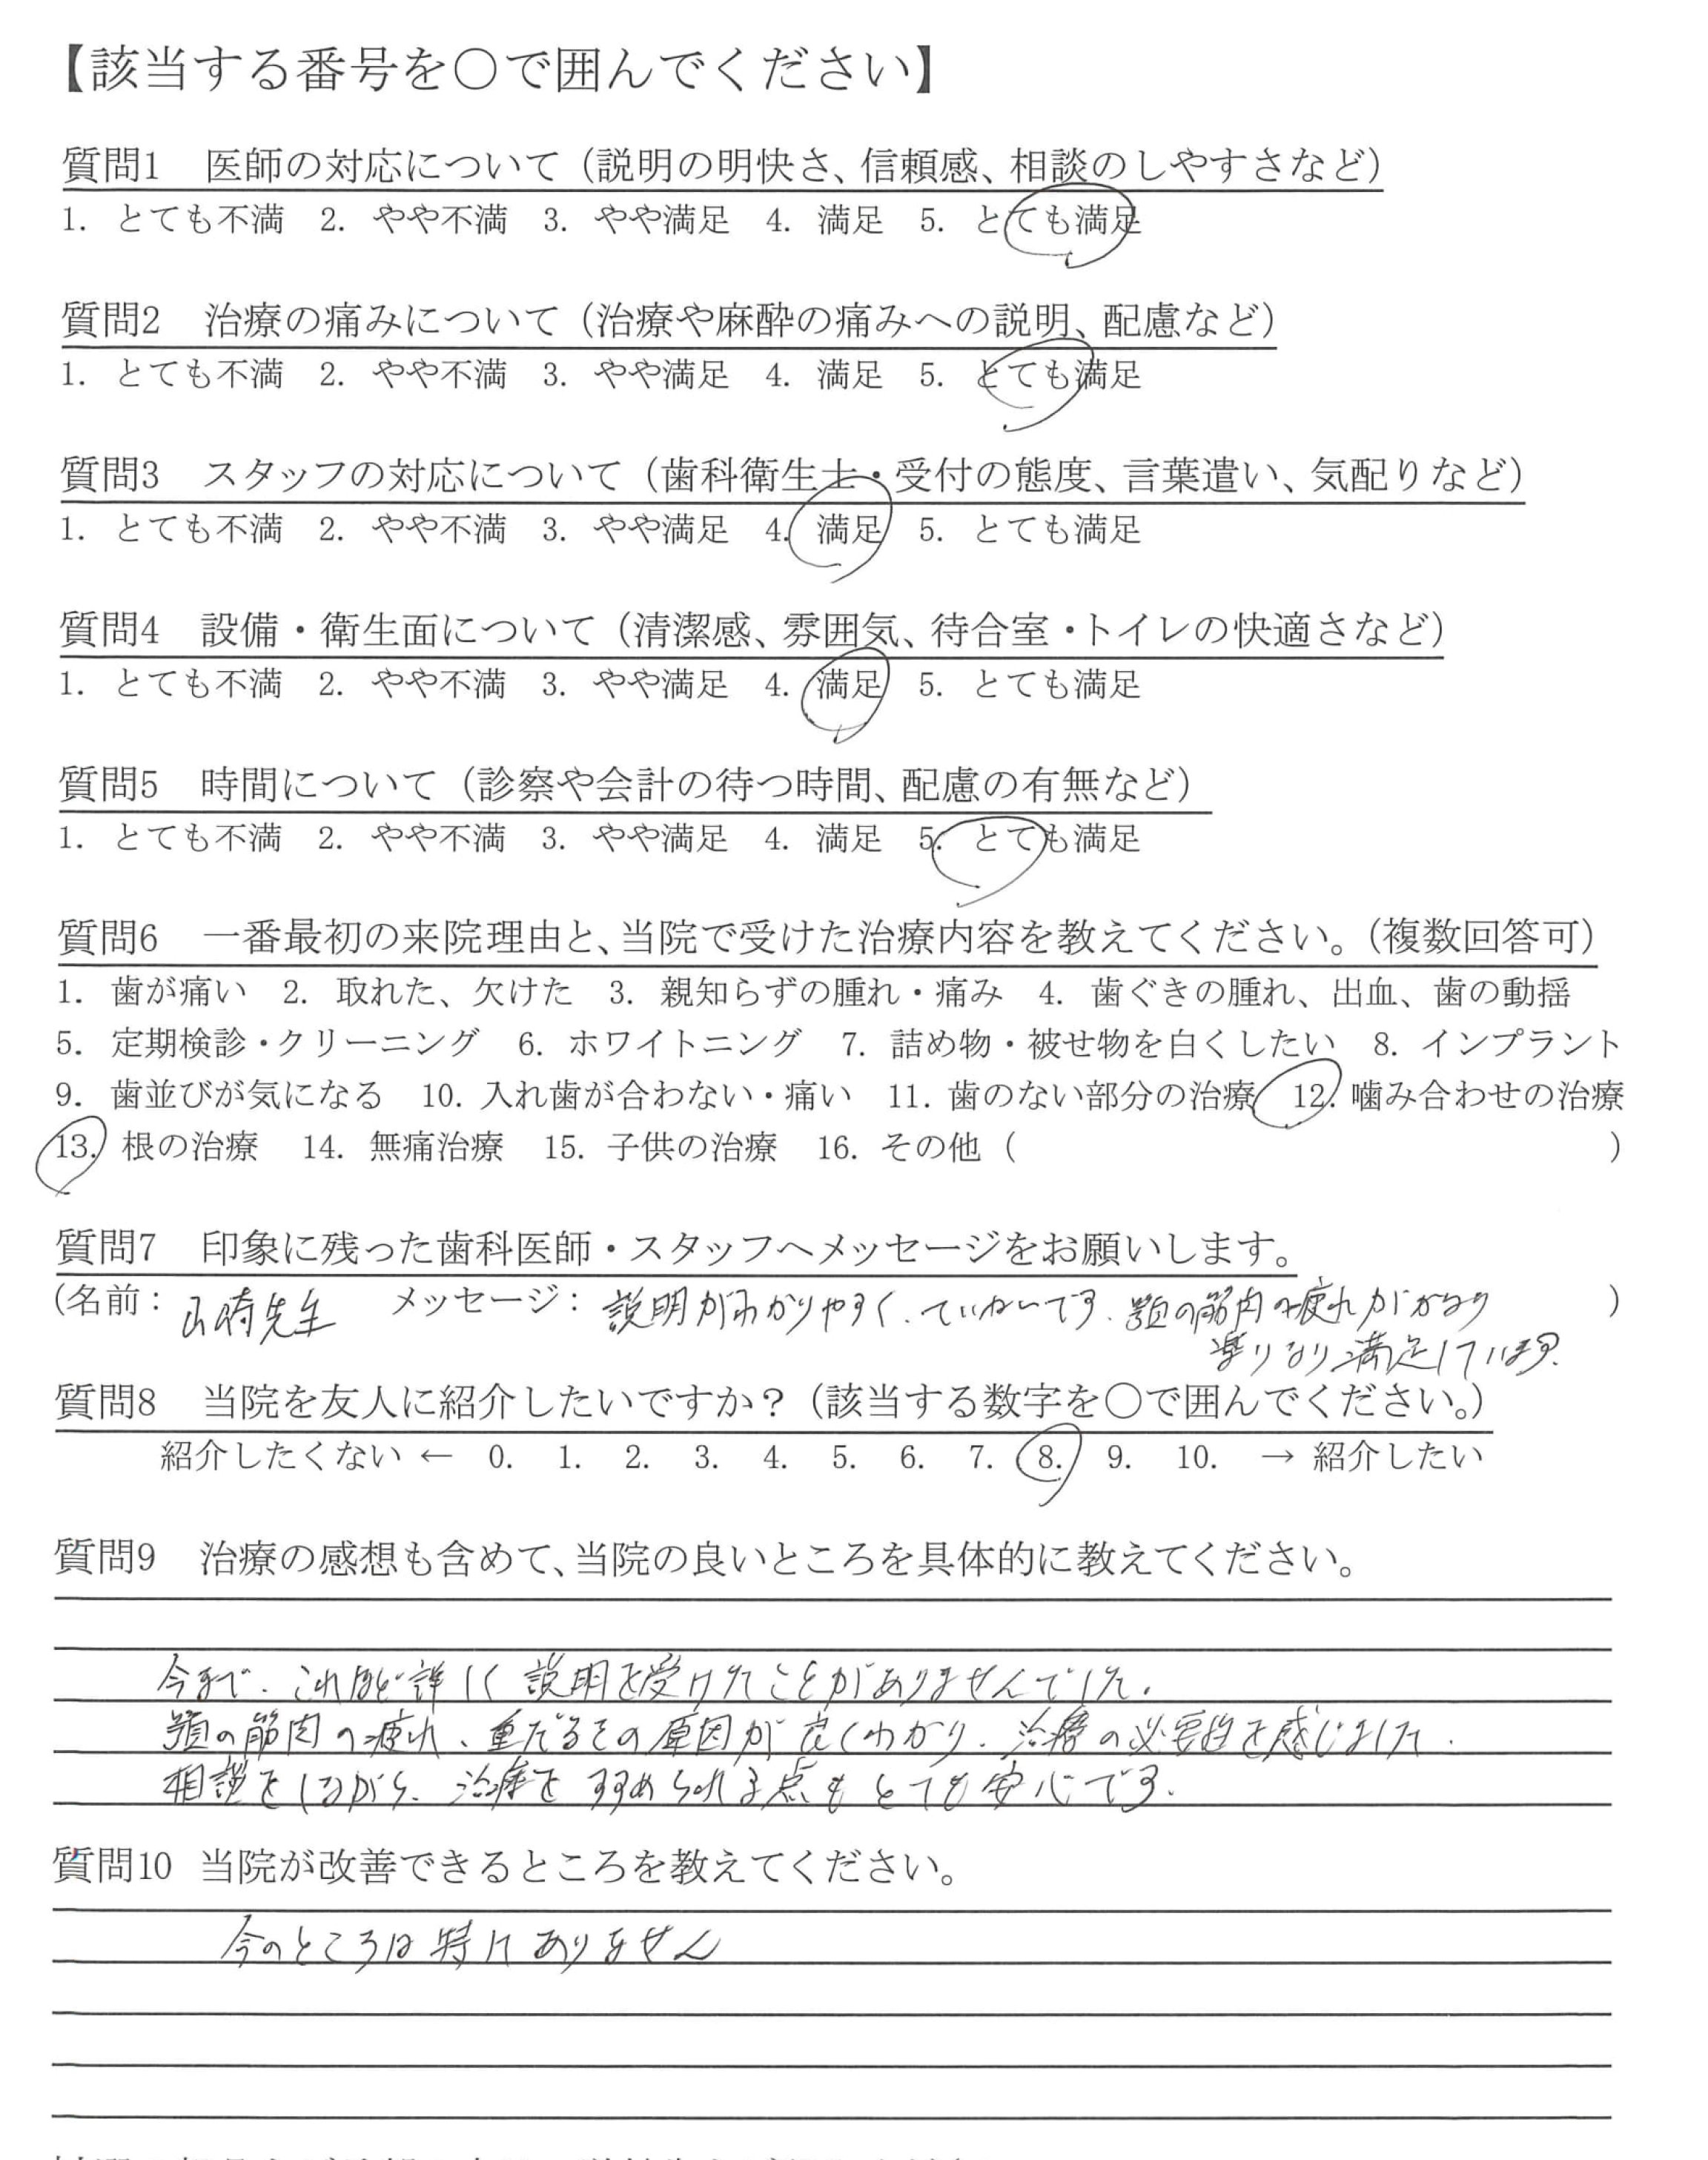 【該当する番号を○で囲んでください】
質問1 医師の対応について（説明の明快さ、信頼感、相談のしやすさなど）
1. とても不満 2. やや不満 3. やや満足 4. 満足 5. とても満足
質問2 治療の痛みについて（治療や麻酔の痛みへの説明、配慮など）
1. とても不満 2. やや不満 3. やや満足 4. 満足 5. とても満足
質問3 スタッフの対応について（歯科衛生士・受付の態度、言葉遣い、気配りなど）
1. とても不満 2. やや不満 3. やや満足 4. 満足 5. とても満足
質問4 設備・衛生面について（清潔感、雰囲気、待合室・トイレの快適さなど）
1. とても不満 2. やや不満 3. やや満足 4. 満足 5. とても満足
質問5 時間について（診察や会計の待つ時間、配慮の有無など）
1. とても不満 2. やや不満 3. やや満足 4. 満足 5. とても満足
質問6 一番最初の来院理由と、当院で受けた治療内容を教えてください。（複数回答可）
1. 歯が痛い 2. 取れた、欠けた 3. 親知らずの腫れ・痛み 4. 歯ぐきの腫れ、出血、歯の動揺
5. 定期検診・クリーニング 6. ホワイトニング 7. 詰め物・被せ物を白くしたい 8. インプラント
9. 歯並びが気になる 10. 入れ歯が合わない・痛い 11. 歯のない部分の治療 12. 噛み合わせの治療
13. 根の治療 14. 無痛治療 15. 子供の治療 16. その他（ ）
質問7 印象に残った歯科医師・スタッフへメッセージをお願いします。
（名前：山崎先生 メッセージ：説明がわかりやすく、ていねいです。顎の筋肉の疲れがかなり ）
楽になり満足しています。
質問8 当院を友人に紹介したいですか？（該当する数字を○で囲んでください。）
紹介したくない ← 0. 1. 2. 3. 4. 5. 6. 7. 8. 9. 10. → 紹介したい
質問9 治療の感想も含めて、当院の良いところを具体的に教えてください。
今まで、これほど詳しく説明を受けたことがありませんでした。
顎の筋肉の疲れ、重だるさの原因が良くわかり、治療の必要性を感じました。
相談をしながら、治療をすすめられる点もとても安心です。
質問10 当院が改善できるところを教えてください。
今のところは特にありません